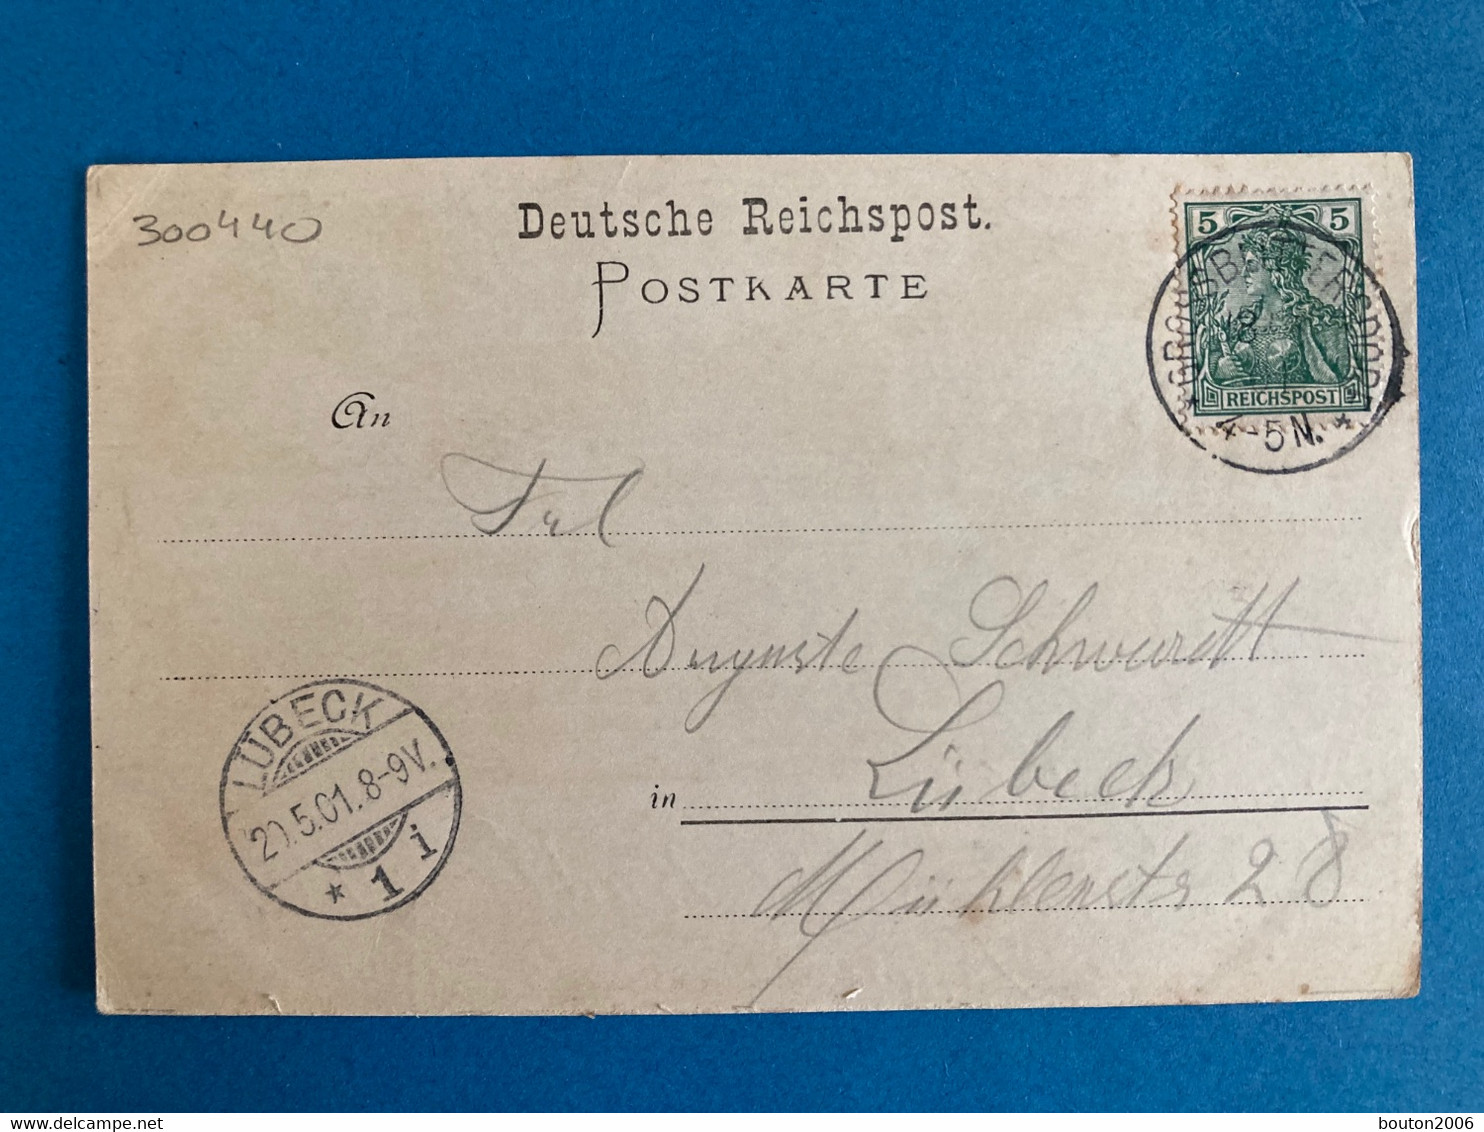 300440
Deutsche Reichspost.
POSTKARTE
5 5
REICHSPOST
4-5N.
An
Frl
Auguste Schwerdt
in Lübeck
Mühlenstr 28
LÜBECK
20.5.01.8-9V.
* 1 i
delcampe.net
bouton2006